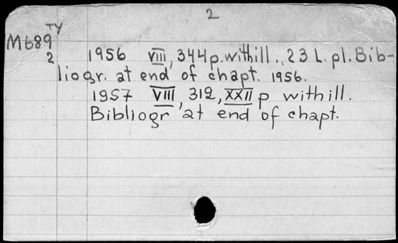 2
TY
M689
2
1956 VIII, 344 p. with ill., 23 L. pl. Bib-
liogr. at end of chapt. 1956.
1957 VIII, 312, XXII p with ill.
Bibliogr at end of chapt.